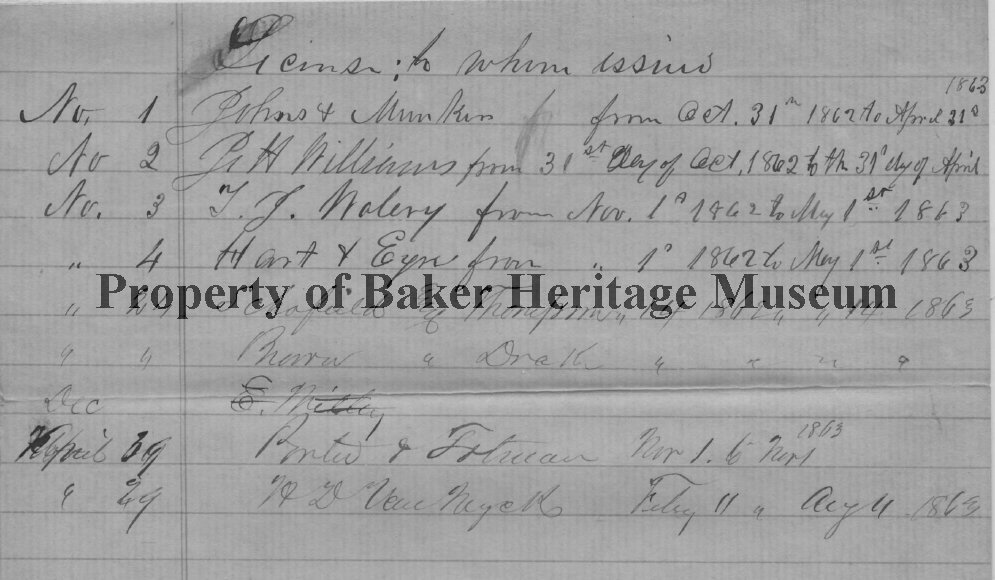 License; to whom issued
1863
No. 1 Johns & Munkers from Oct. 31st 1862 to April 31st
No 2 Williams from 31st day of Oct, 1862 to the 31st day of April
No. 3 T. J. Walery from Nov. 1st 1862 to May 1st 1863
" 4 Hart & Eyre from " 1st 1862 to May 1st 1863
Property of Baker Heritage Museum
" & Thompson " 14 1862 " " 14 1863
" " Brown " Drake " " " "
Dec E.
1863
April 29 Porter & Nov 1. to Nov 1
" 29 H D Van Wyck Feby 11 " Aug 11 1863